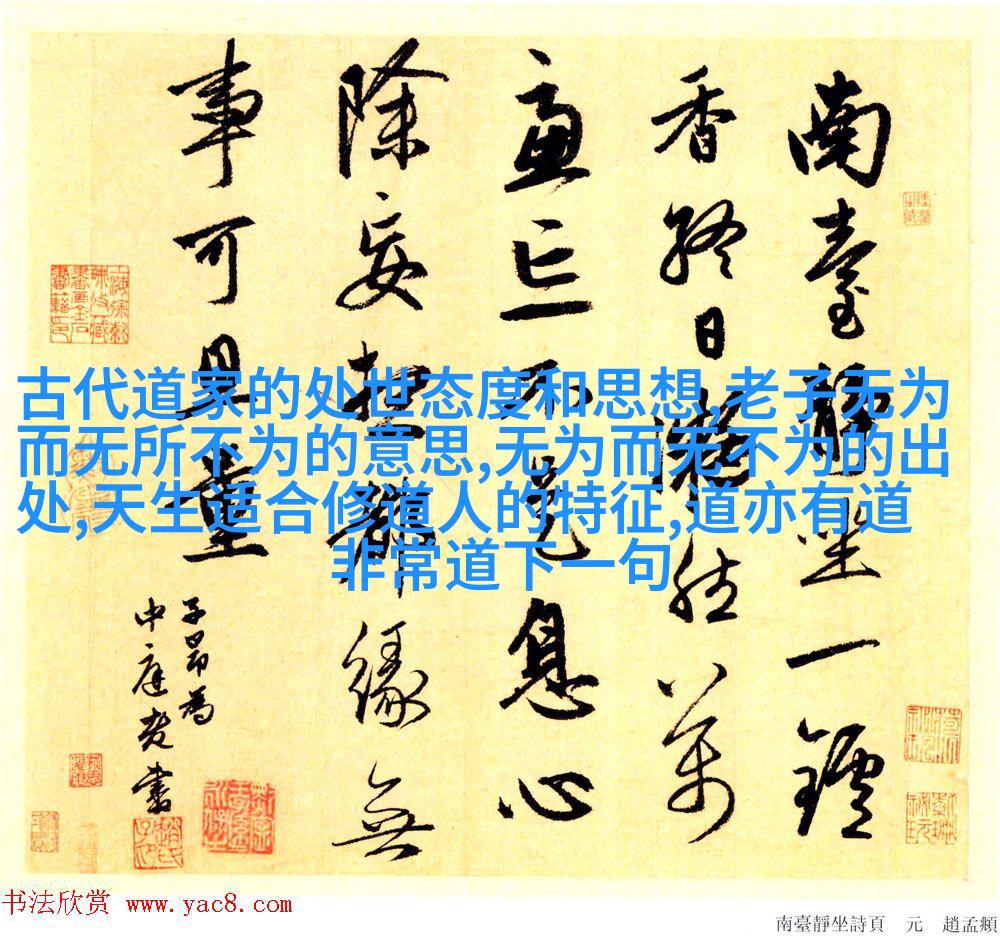 南臺靜坐一鑪
香終日凝然萬
慮亡不是息心
除妄想都緣無
事可思量
子昂為
中庭老書
古代道家的处世态度和思想,老子无为
而无所不为的意思,无为而无不为的出
处,天生适合修道人的特征,道亦有道
非常道下一句
书法欣赏 www.yac8.com
南臺靜坐詩頁 元 趙孟頫